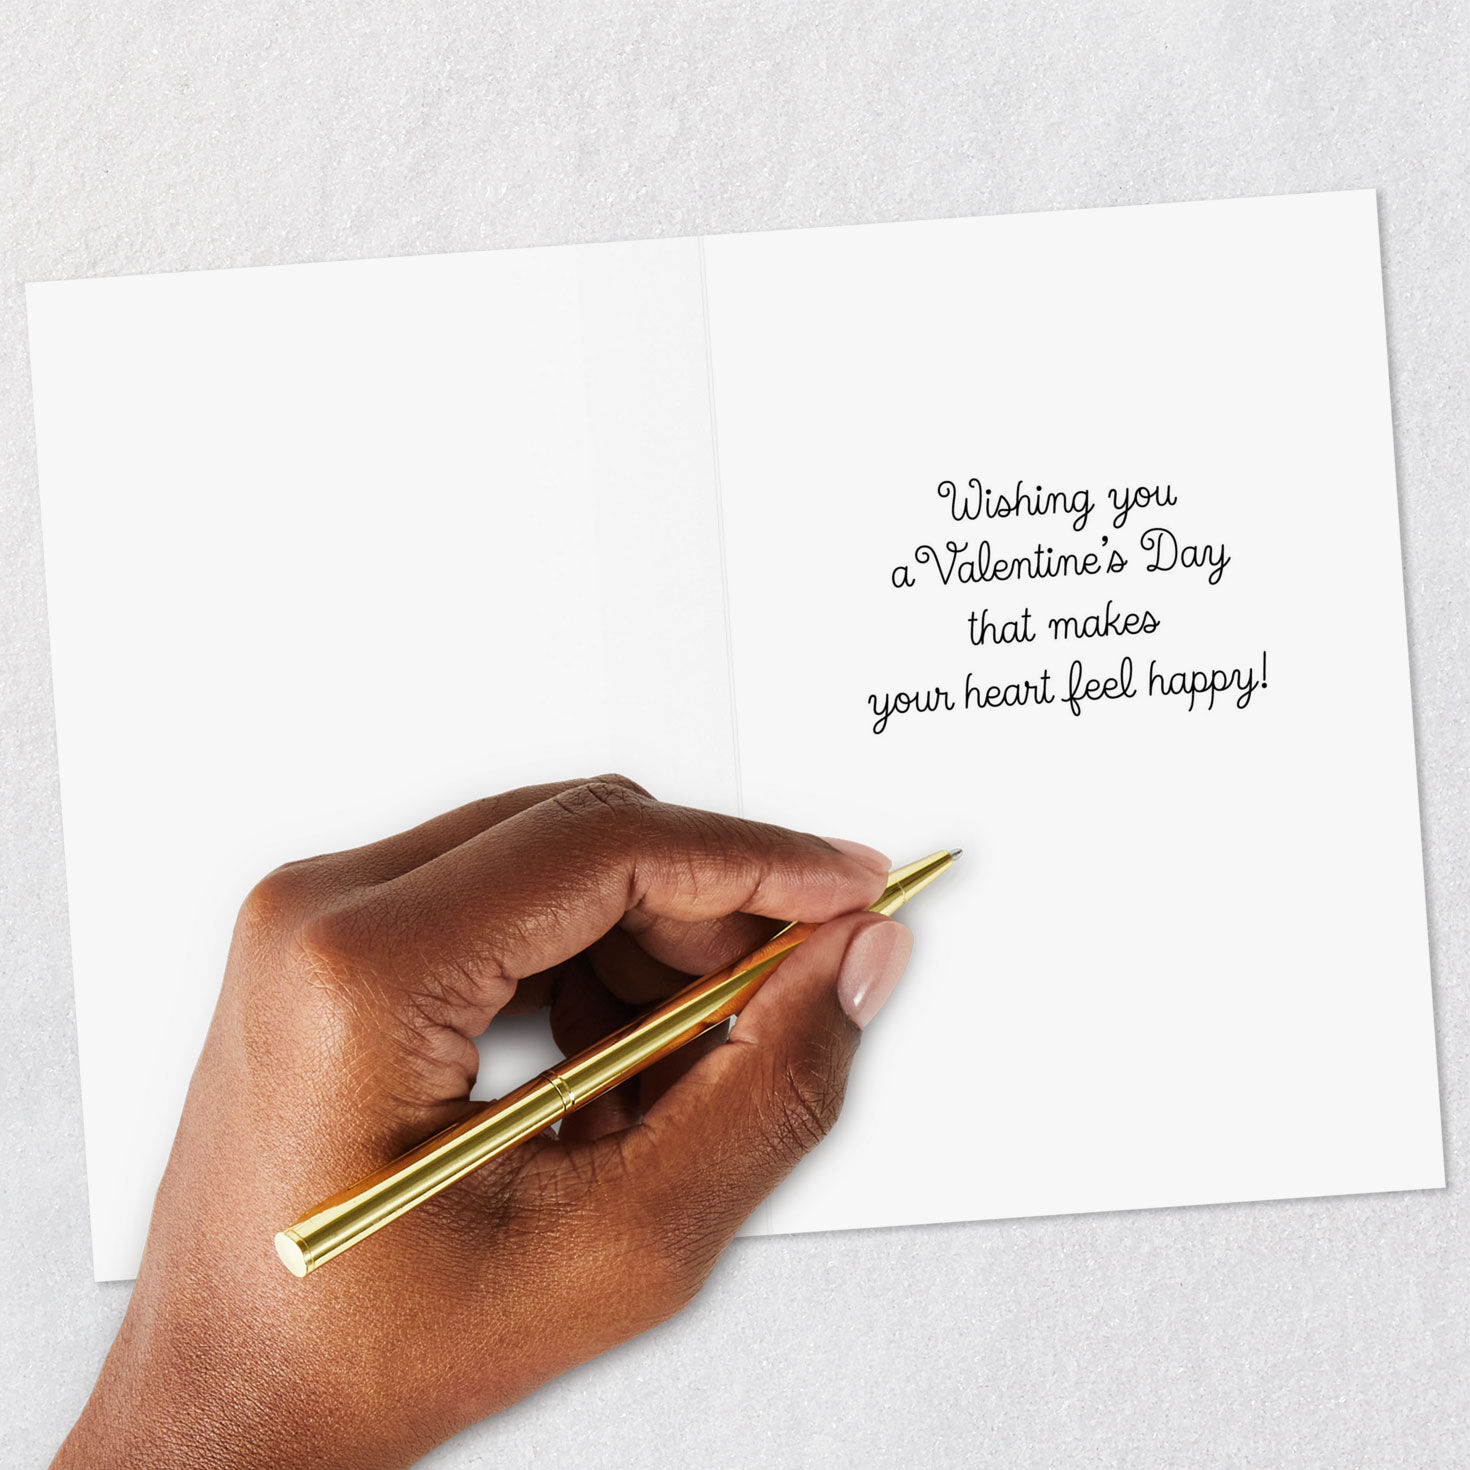 Wishing you
a Valentine's Day
that makes
your heart feel happy!